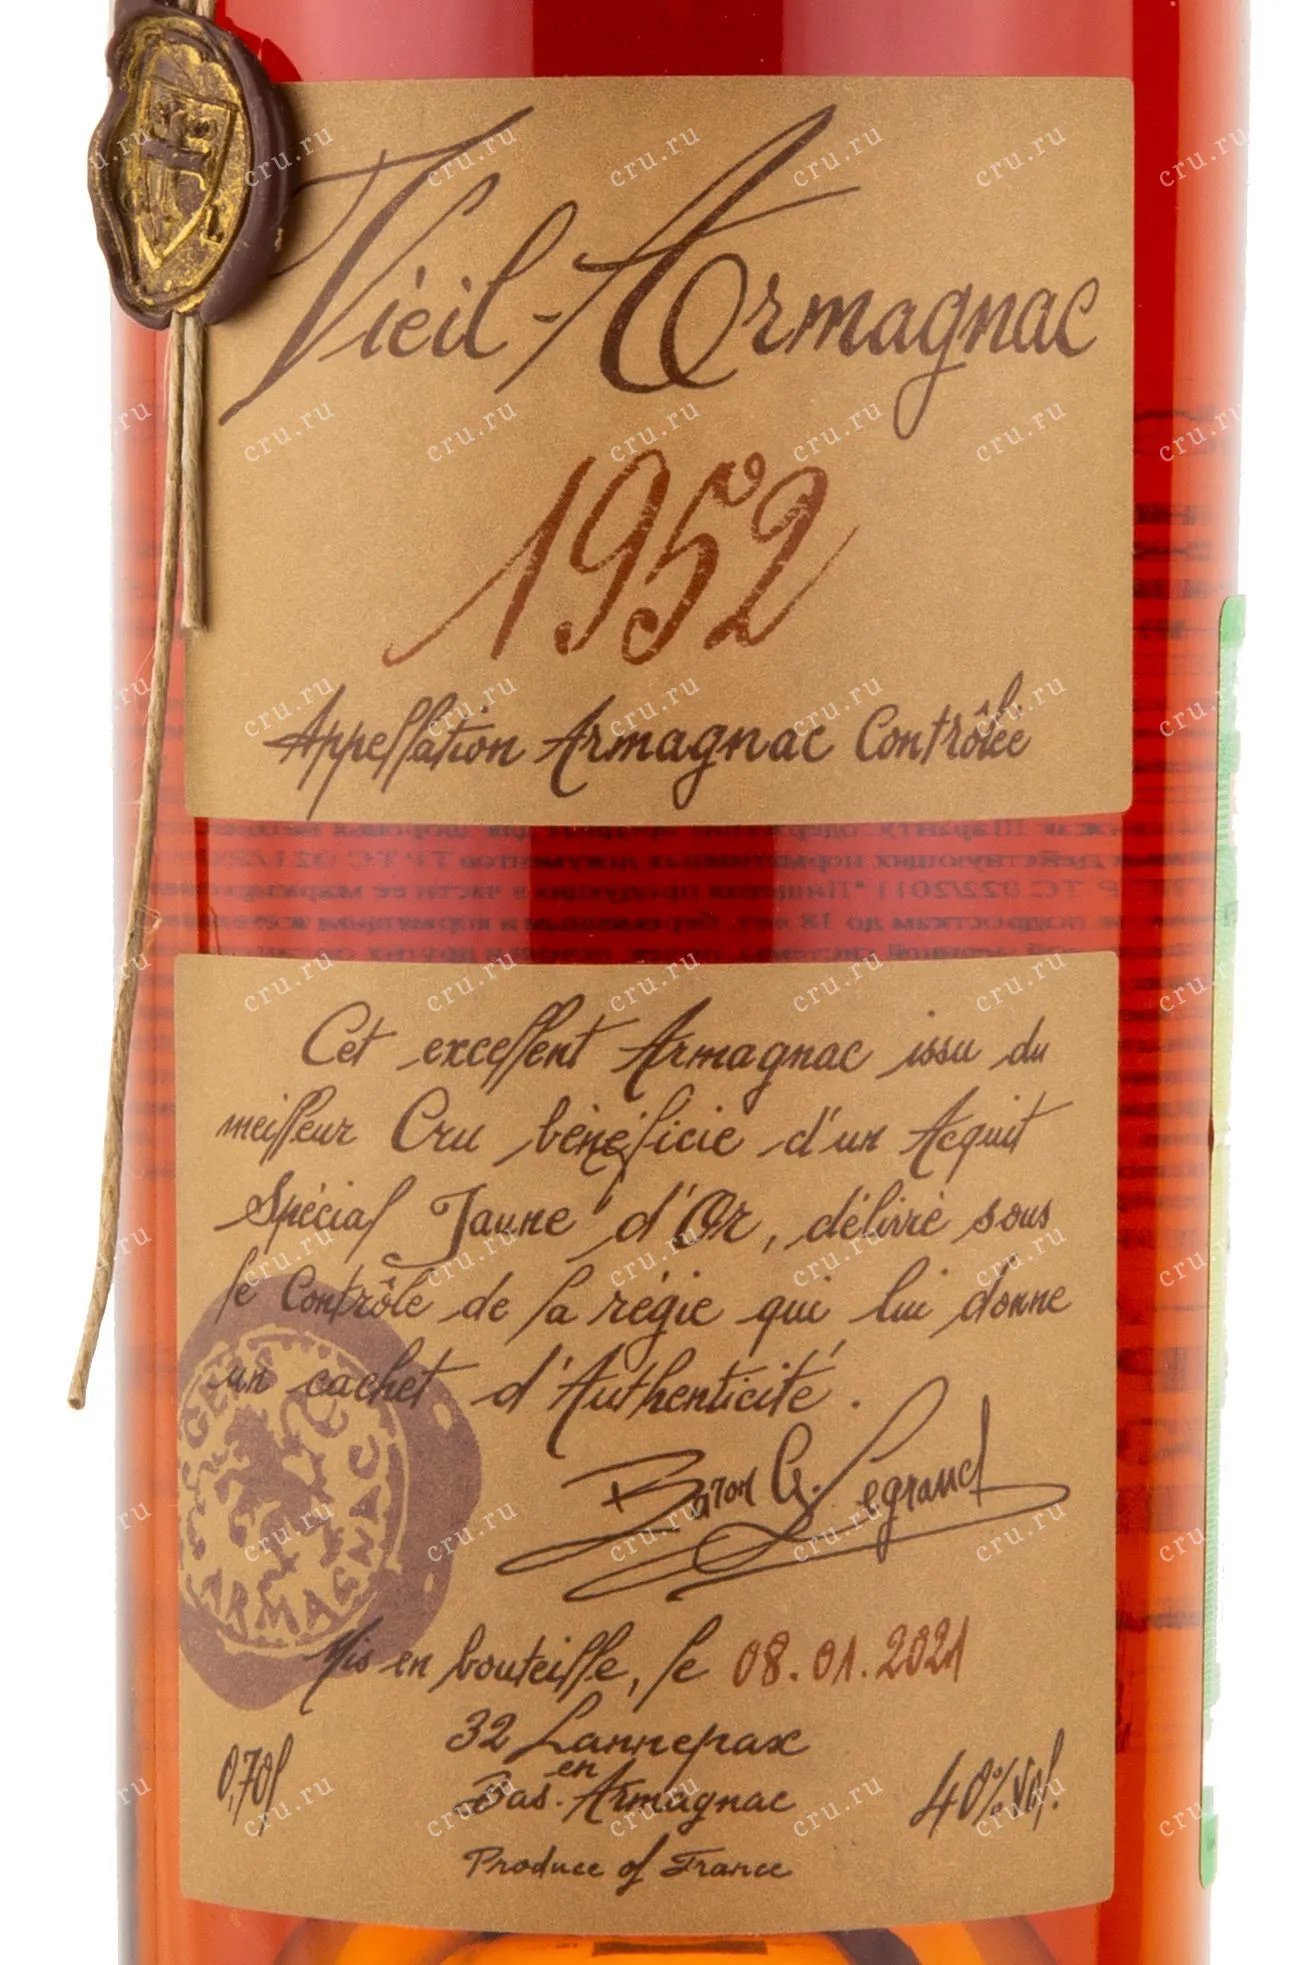 Vieil-Armagnac
1952
Appellation Armagnac Contrôlée
Cet excellent Armagnac issu du
meilleur Cru bénéficie d'un Acquit
Spécial Jaune d'Or, délivré sous
le Contrôle de la régie qui lui donne
un cachet d'Authenticité.
Baron G. Legrand
ARMAGNAC
Mis en bouteille, le 08.01.2021
32 Lannepax
en
Bas-Armagnac
0,70l
40% Vol.
Produce of France
cru.ru